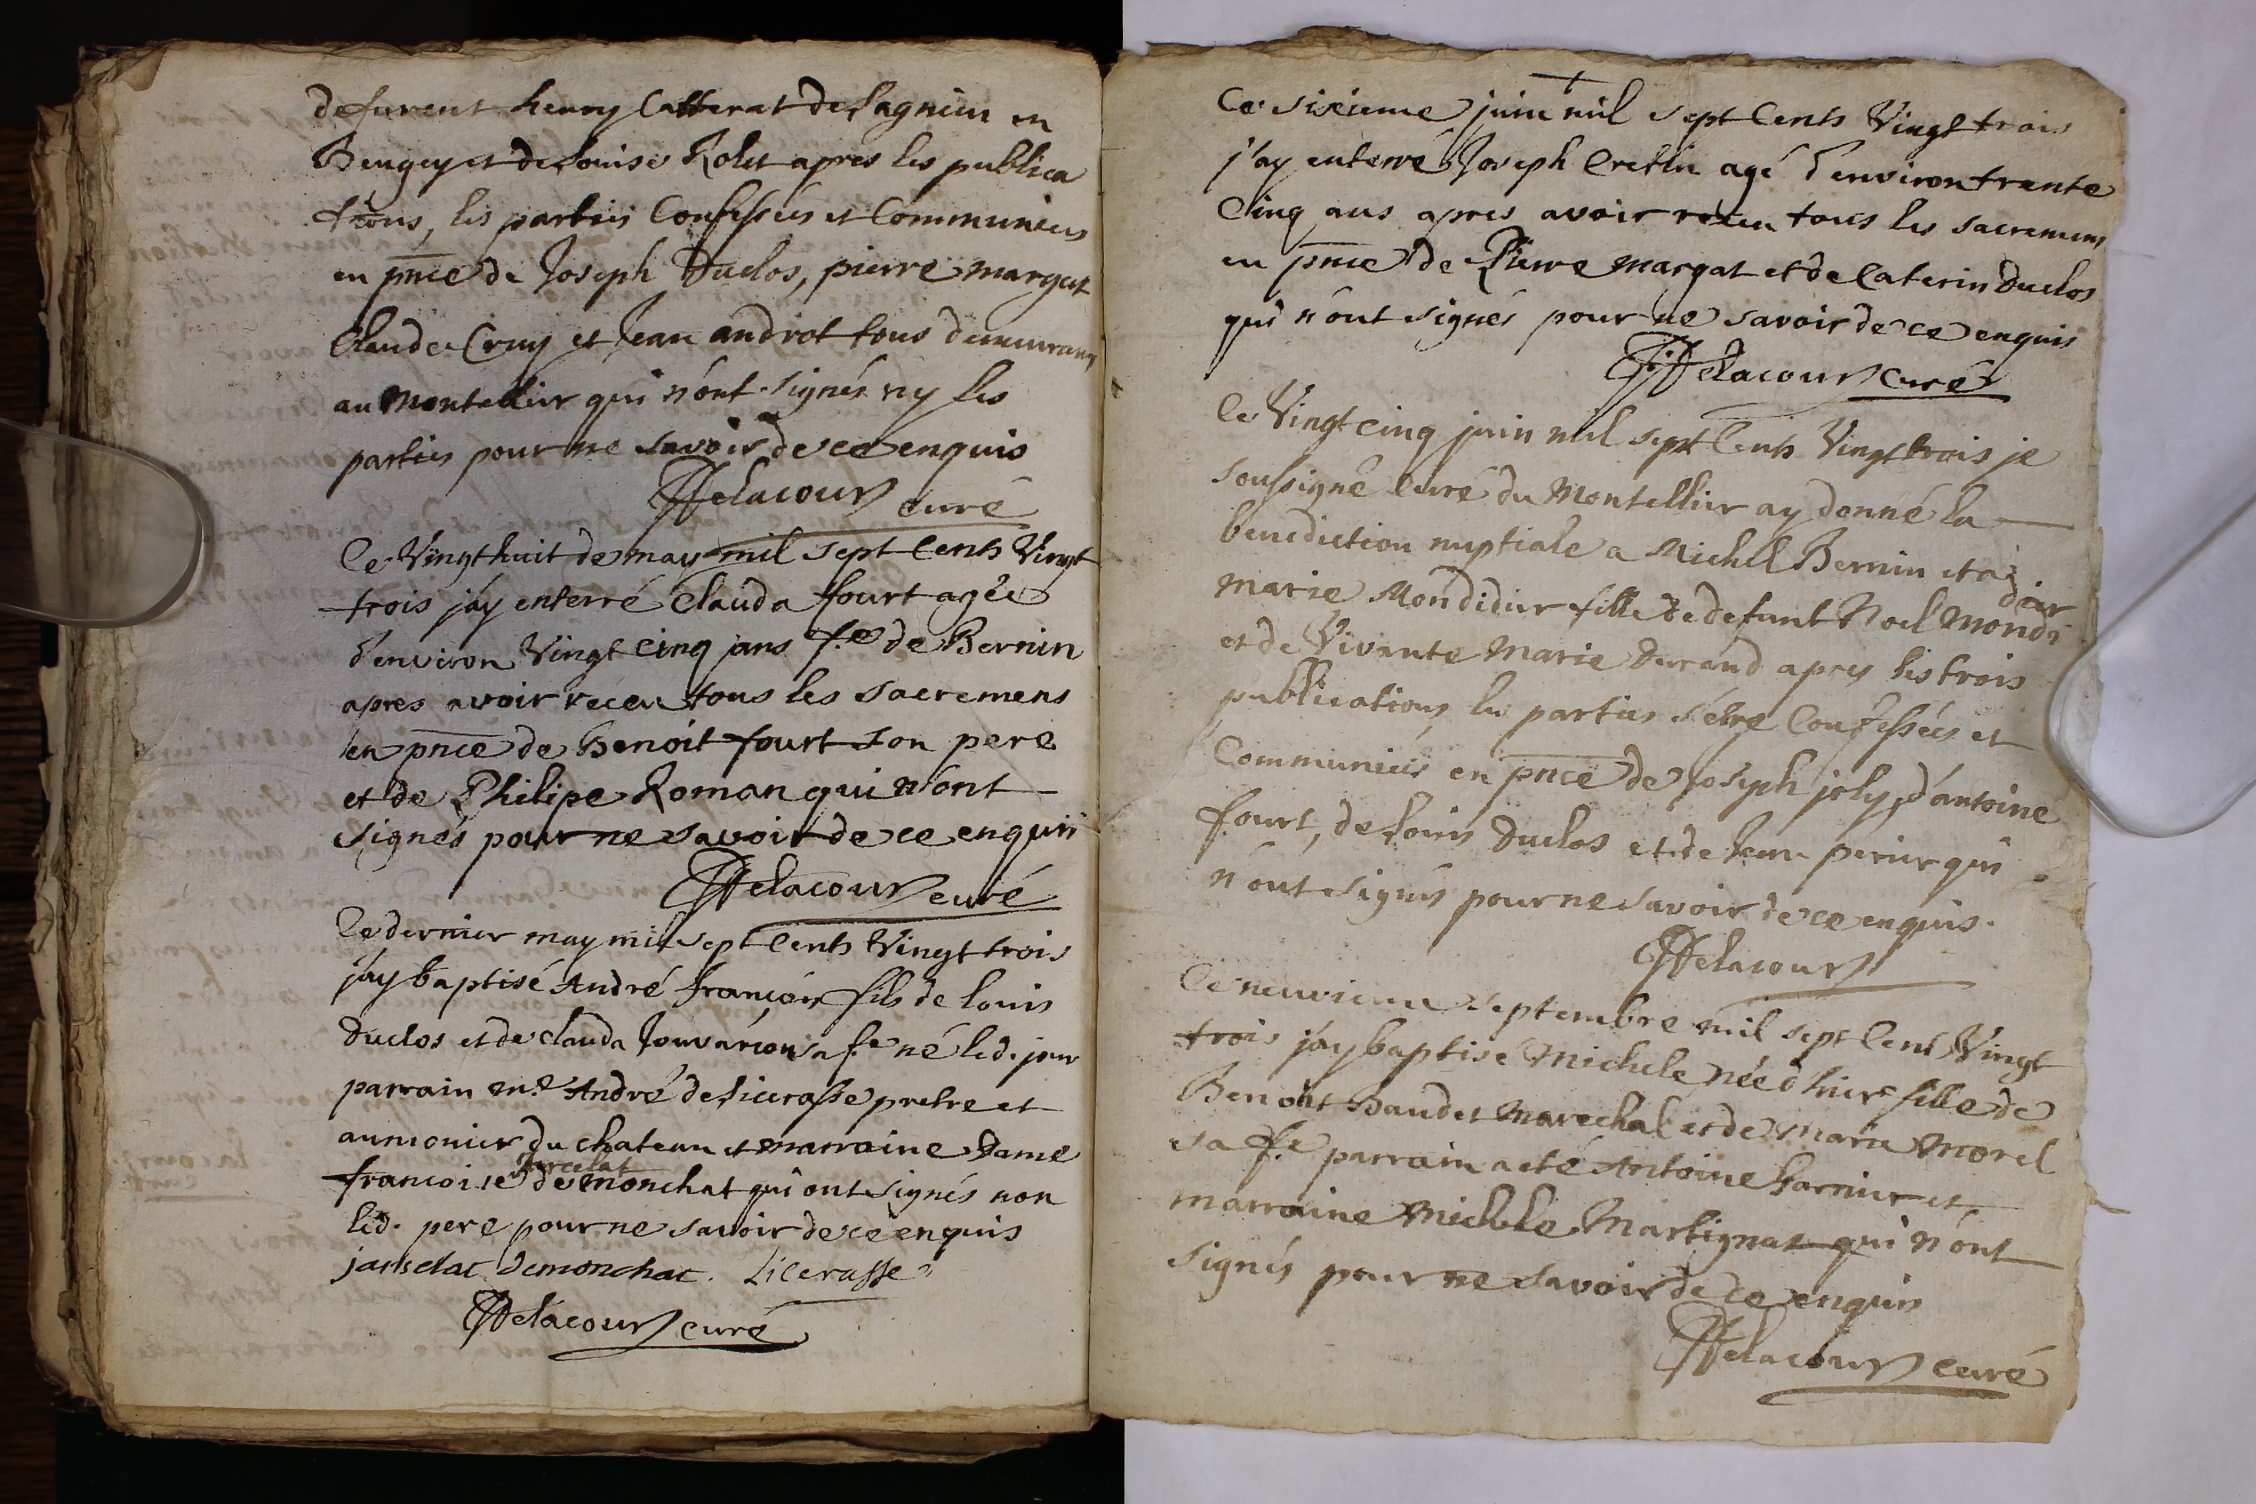 defurent henry Catterat de Lagnieu en
Beugey et de Louise Rolet apres les publica
tions, les parties Confessées et Communiées
en pnce de Joseph Duclos, pierre margat
Claude Cruy et Jean androt tous demeurans
au Montellier qui n'ont signés ny les
parties pour ne savoir de ce enquis
Delacour curé
Ce Vingt huit de may mil sept Cents Vingt
trois j'ay enterré Clauda fourt agée
d'environ Vingt Cinq ans f.e de Bernin
apres avoir receu tous les sacremens
en pnce de Benoit fourt son pere
et de Philipe Roman qui n'ont
signés pour ne savoir de ce enquis
Delacour curé
Ce dernier may mil sept Cents Vingt trois
j'ay baptisé André françois fils de louis
Duclos et de clauda Jouvarion sa f.e né led. jour
parrain m.e André de Licerasse pretre et
aumonier du chateau et marraine Dame
francoise Jarcelat de monchat qui ont signés non
led. pere pour ne savoir de ce enquis
demonchat. Licerasse
Delacour curé
Ce sixieme juin mil sept Cents Vingt trois
j'ay enterré Joseph Cretin agé d'environ trente
Cinq ans apres avoir receu tous les sacremens
en pnce de Pierre margat et de Caterin Duclos
qui n'ont signés pour ne savoir de ce enquis
Delacour curé
Ce Vingt cinq juin mil sept Cents Vingt trois je
soussigné Curé du Montellier ay donné la
benediction nuptiale a Michel Bernin et a
marie Mondidier fille de defunt Noel Mondidier
et de Vivante Marie Durand apres les trois
publications les parties s'étre Confessées et
Communiées en pnce de Joseph joly, d'antoine
fourt, de Louis Duclos et de Jean perier qui
n'ont signés pour ne savoir de ce enquis.
Delacour
Ce neuvieme septembre mil sept Cent Vingt
trois j'ay baptisé Michele née d'hier fille de
Benoit Baudet marechal et de marie morel
sa f.e parrain a eté Antoine Garnier et
marraine Michele Martignat qui n'ont
signés pour ne savoir de ce enquis
Delacour Curé